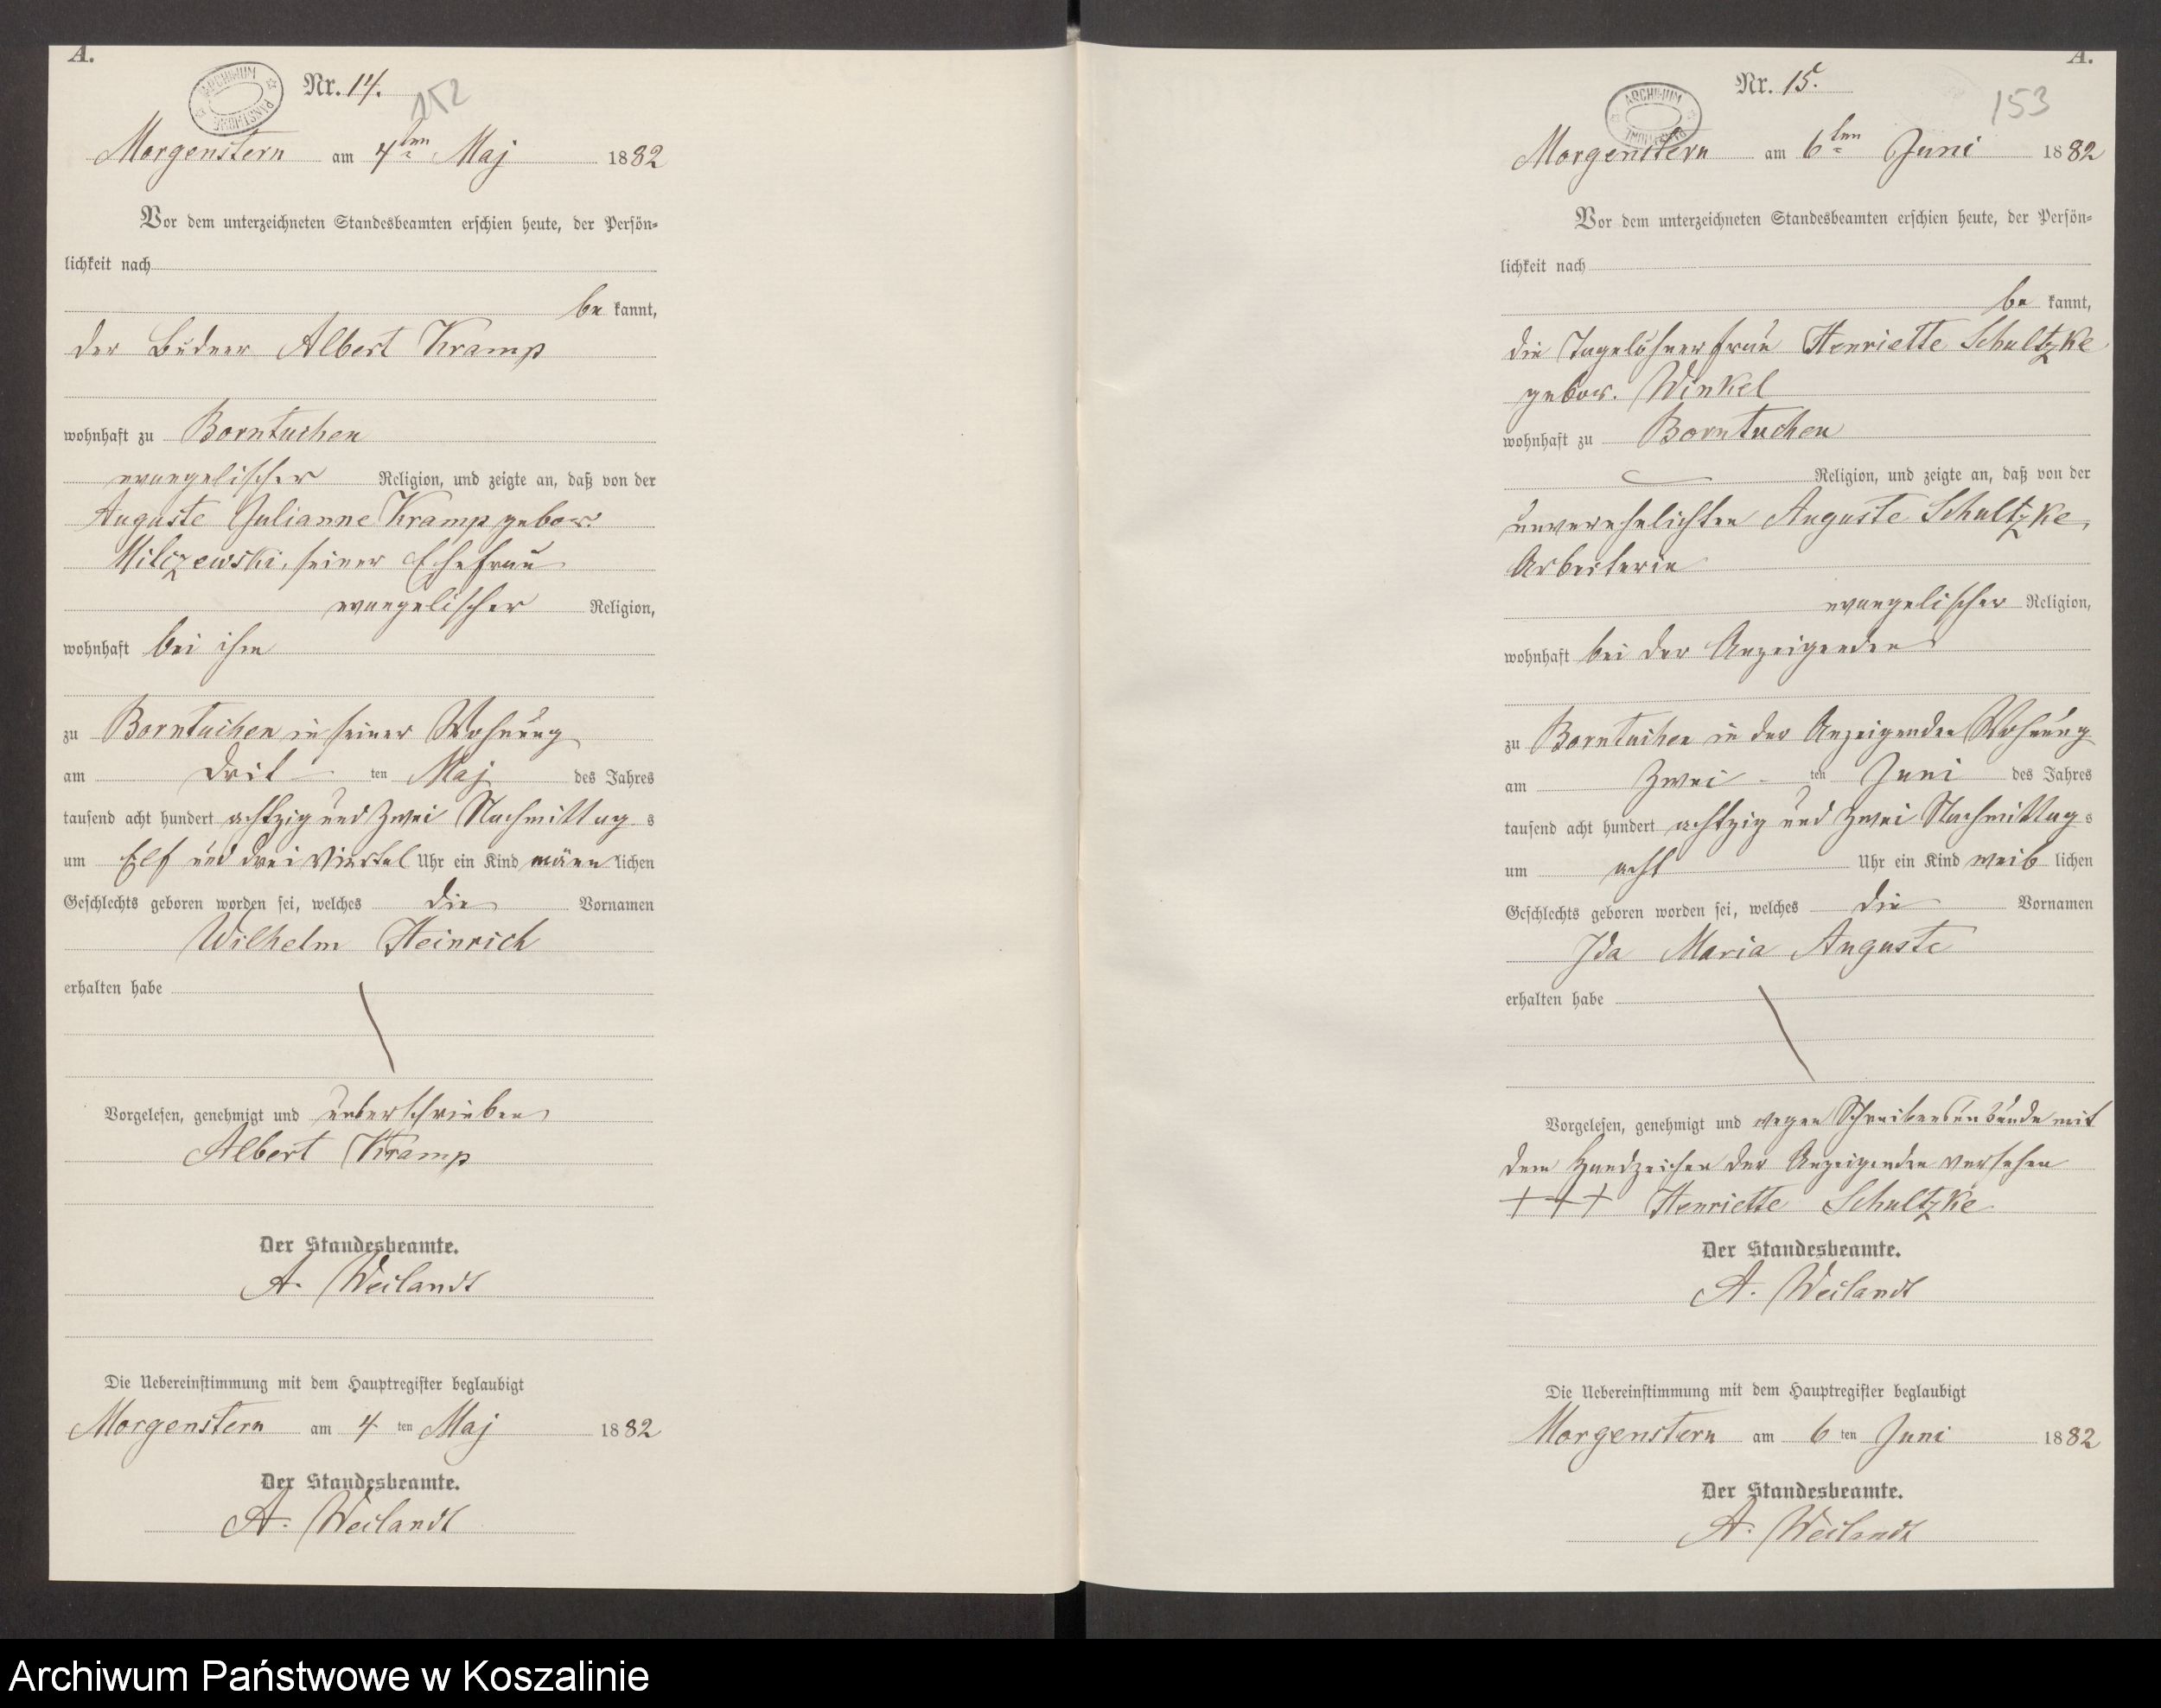 A.
Nr. 14.
152
Morgenstern am 4ten Maj 1882
Vor dem unterzeichneten Standesbeamten erschien heute, der Persön-
lichkeit nach
be kannt,
der Büdner Albert Kramp
wohnhaft zu Borntuchen
evangelischer Religion, und zeigte an, daß von der
Auguste Julianne Kramp gebor.
Milczewski, seiner Ehefrau
evangelischer Religion,
wohnhaft bei ihm
zu Borntuchen in seiner Wohnung
am drit ten Maj des Jahres
tausend acht hundert achtzig und zwei Nachmittag s
um Elf und drei Viertel Uhr ein Kind männ lichen
Geschlechts geboren worden sei, welches die Vornamen
Wilhelm Heinrich
erhalten habe
Vorgelesen, genehmigt und unterschrieben
Albert Kramp
Der Standesbeamte.
A. Weilandt
Die Uebereinstimmung mit dem Hauptregister beglaubigt
Morgenstern am 4 ten Maj 1882
Der Standesbeamte.
A. Weilandt
A.
ARCHIWUM
Nr. 15.
153
Morgenstern am 6ten Juni 1882
Vor dem unterzeichneten Standesbeamten erschien heute, der Persön-
lichkeit nach
be kannt,
die Tagelöhnerfrau Henriette Schultzke
gebor. Winkel
wohnhaft zu Borntuchen
Religion, und zeigte an, daß von der
unverehelichten Auguste Schultzke,
Arbeiterin
evangelischer Religion,
wohnhaft bei der Anzeigenden
zu Borntuchen in der Anzeigenden Wohnung
am zwei ten Juni des Jahres
tausend acht hundert achtzig und zwei Nachmittag s
um acht Uhr ein Kind weib lichen
Geschlechts geboren worden sei, welches die Vornamen
Ida Maria Auguste
erhalten habe
Vorgelesen, genehmigt und wegen Schreibensunkunde mit
dem Handzeichen der Anzeigenden versehen
+++ Henriette Schultzke
Der Standesbeamte.
A. Weilandt
Die Uebereinstimmung mit dem Hauptregister beglaubigt
Morgenstern am 6 ten Juni 1882
Der Standesbeamte.
A. Weilandt
Archiwum Państwowe w Koszalinie